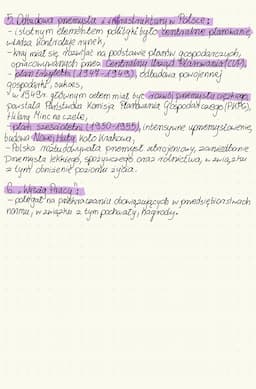 5. Odbudowa przemysłu i infrastruktury w Polsce:
- istotnym elementem polityki było centralne planowanie,
władza kontroluje rynek,
- kraj miał się rozwijać na podstawie planów gospodarczych,
opracowywanych przez Centralny Urząd Planowania (CUP),
- plan trzyletni (1947-1949), odbudowa powojennej
gospodarki, sukces,
- w 1949r. głównym celem miał być rozwój przemysłu ciężkiego,
powstała Państwowa Komisja Planowania Gospodarczego (PKPG),
Hilary Minc na czele,
- plan sześcioletni (1950-1955), intensywne uprzemysłowienie,
budowa Nowej Huty koło Krakowa,
- Polska rozbudowywała przemysł zbrojeniowy, zaniedbanie
przemysłu lekkiego, spożywczego oraz rolnictwa, w związku
z tym obniżenie poziomu życia.
6. "Wyścig Pracy":
- polegał na przekraczaniu obowiązujących w przedsiębiorstwach
norm, w związku z tym pochwały, nagrody.